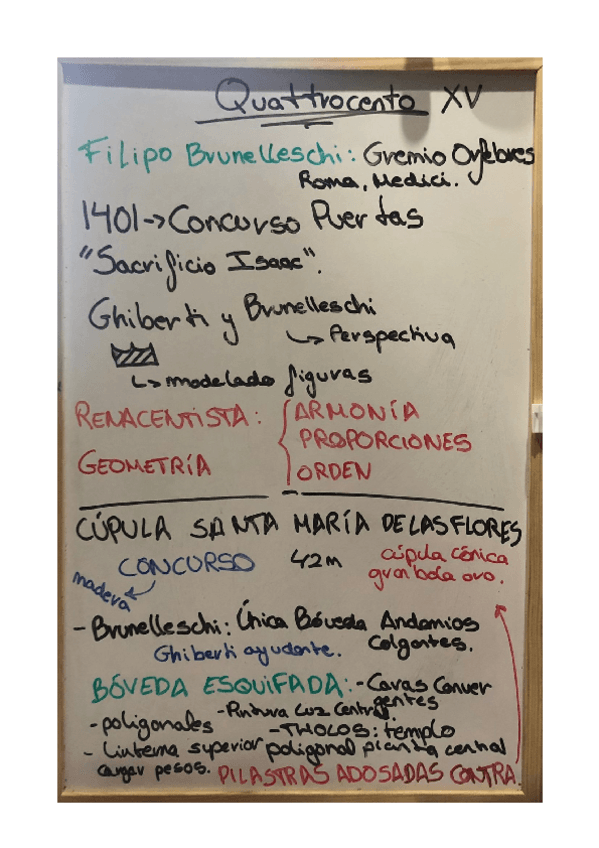 Quattrocento XV
Filipo Brunelleschi: Gremio Orfebres
Roma, Medici.
1401→Concurso Puertas
"Sacrificio Isaac".
Ghiberti y Brunelleschi
↳ Perspectiva
↳ modelado figuras
RENACENTISTA: { ARMONÍA
PROPORCIONES
GEOMETRÍA
ORDEN
CÚPULA SANTA MARÍA DE LAS FLORES
CONCURSO 42m cúpula cónica
madera gran bola oro.
- Brunelleschi: Única Bóveda Andamios
Ghiberti ayudante. Colgantes.
BÓVEDA ESQUIFADA: - Caras Conver
gentes
- poligonales - Pintura Luz Central.
- THOLOS: templo
- Linterna superior poligonal planta central
cargar pesos. PILASTRAS ADOSADAS CONTRA